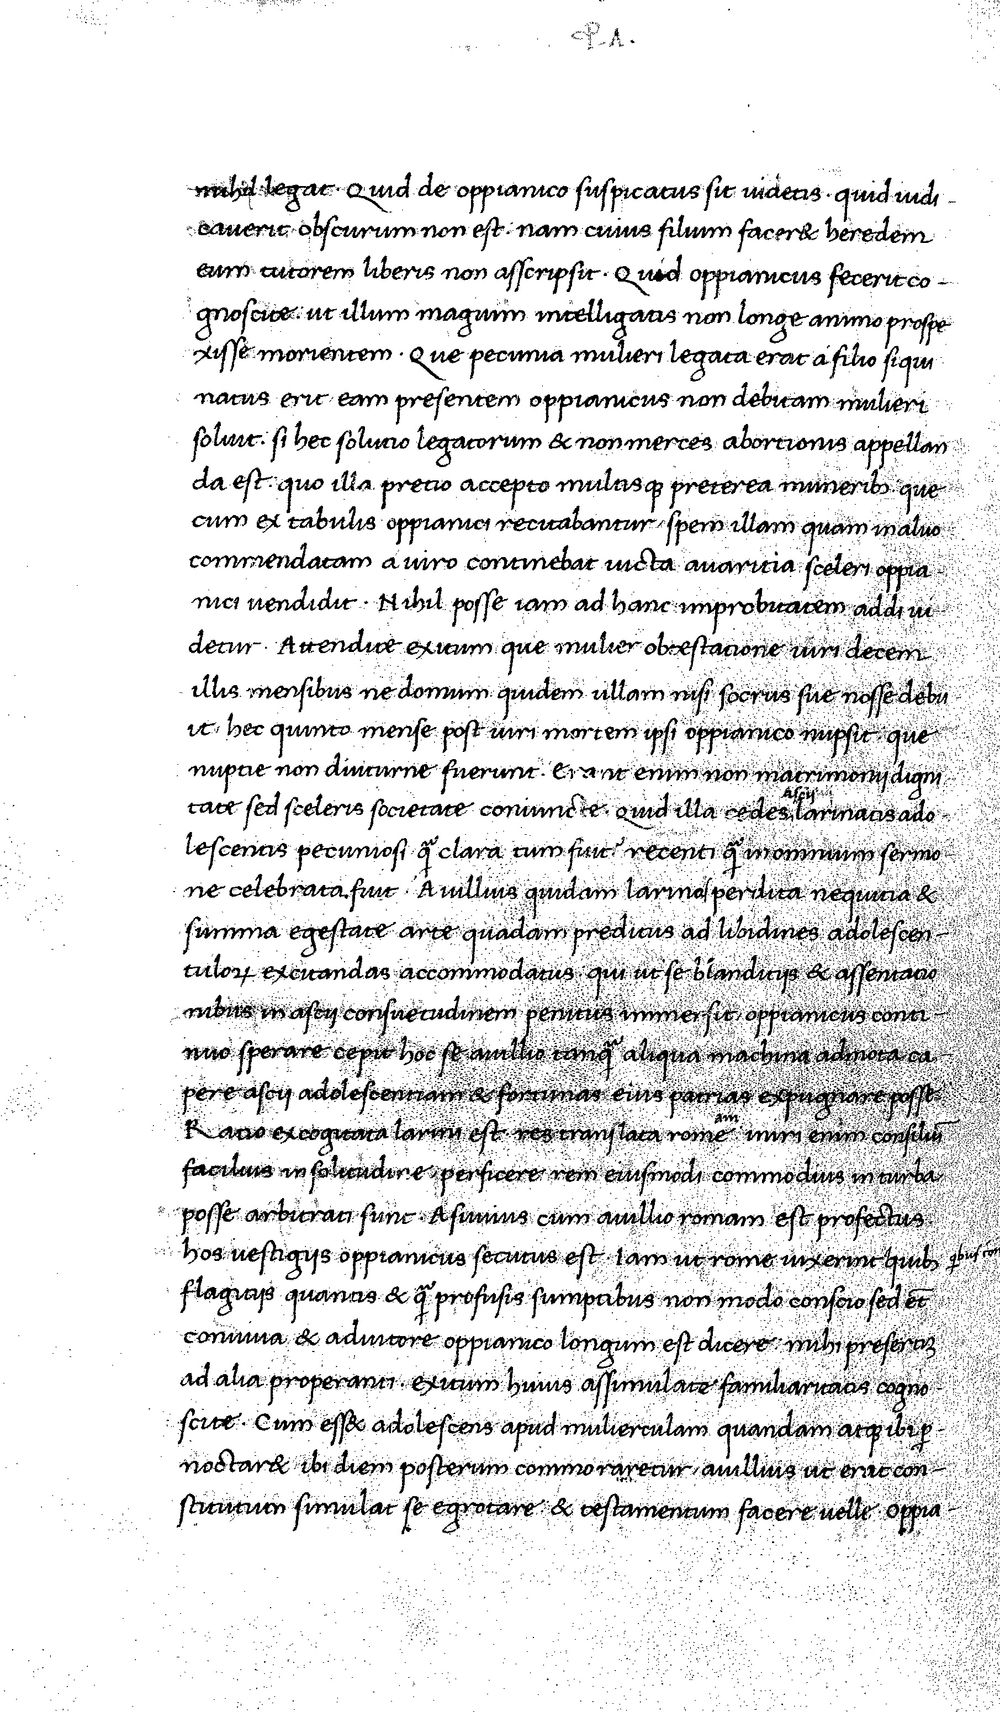 P. A.
nihil legat. Quid de oppianico suspicatus sit uidetis. quid iudi-
cauerit obscurum non est. nam cuius filium facer& heredem
eum tutorem liberis non asscripsit. Quid oppianicus fecerit co-
gnoscite. ut illum magium intelligatis non longe animo prospe
xisse morientem. Que pecunia mulieri legata erat a filio siqui
natus erit eam presentem oppianicus non debitam mulieri
soluit. si hec solutio legatorum & non merces abortionis appellan
da est. quo illa precio accepto multisqꝫ preterea munerib; que
cum ex tabulis oppianici recitabantur spem illam quam in aluo
commendatam a uiro continebat uicta auaritia sceleri oppia-
nici uendidit. Nihil posse iam ad hanc improbitatem addi ui
detur. Attendite exitum que mulier obtestatione uiri decem
illis mensibus ne domum quidem ullam nisi socrus sue nosse debu
it. hec quinto mense post uiri mortem ipsi oppianico nupsit. que
nuptie non diuturne fuerunt. Erant enim non matrimonij digni
tate sed sceleris societate coniuncte. Quid illa cedes larinatis ado-
ascij
lescentis pecuniosi q̃ clara tum fuit recenti q̃ in omnium sermo
ne celebrata fuit. Auillius quidam larinas perdita nequitia &
summa egestate arte quadam preditus ad libidines adolescen-
tuloꝝ excitandas accommodatus. qui ut se blanditijs & assentatio
nibus in ascij consuetudinem penitus immersit. oppianicus conti-
nuo sperare cepit hoc se auillio tanq̃ aliqua machina admota ca
pere ascij adolescentiam & fortunas eius patrias expugnare posse.
Ratio excogitata larini est res translata rome iniri enim consiliũ
am
facilius in solitudine, perficere rem eiusmodi commodius in turba
posse arbitrati sunt. Asinius cum auillio romam est profectus.
hos uestigijs oppianicus secutus est. Iam ut rome uixerint quib;
flagitijs quantis & q̃ profusis sumptibus non modo conscio sed et̃
conuiua & adiutore oppianico longum est dicere mihi presertiꝫ
ad alia properanti. exitum huius assimulate familiaritatis cogno-
scite. Cum ess& adolescens apud mulierculam quandam atqꝫ ibi ꝑ-
noctar& ibi diem posterum commoraretur, auillius ut erat con-
stitutum simulat se egrotare & testamentum facere uelle oppia-